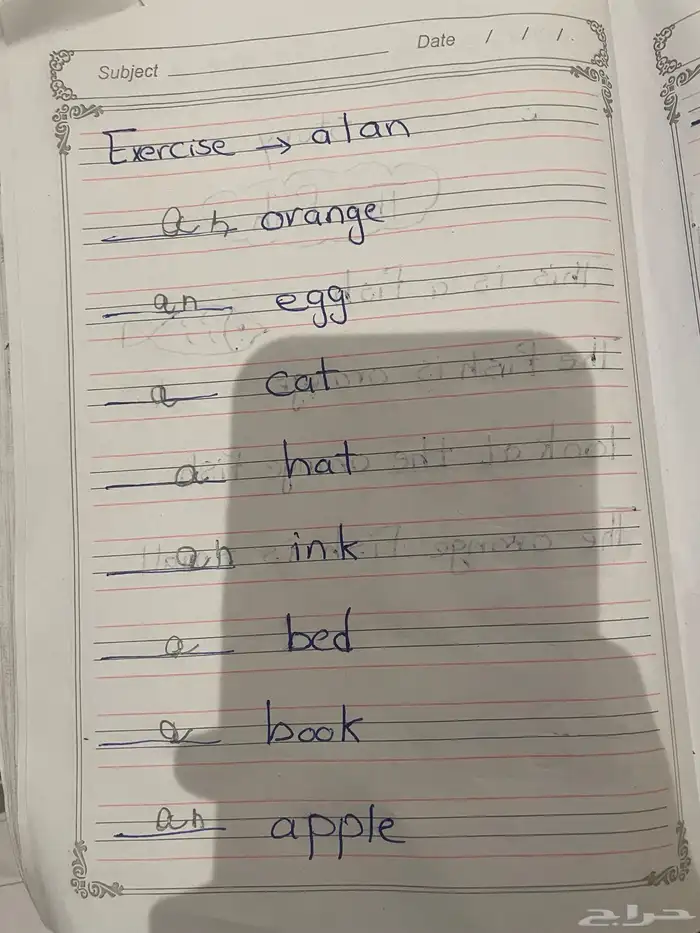 Subject
Date / / /.
Exercise → a/an
an orange
an egg
a cat
a hat
an ink
a bed
a book
an apple
حراج